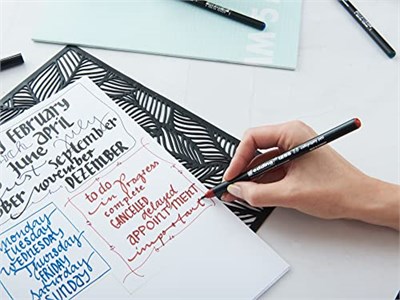 February
April
June July
September
november DEZEMBER
to do
in progress
complete
CANCELLED delayed
APPOINTMENT
important
monday
TUESDAY
WEDNESDAY
Thursday
FRIDAY
Saturday
SUNDAY